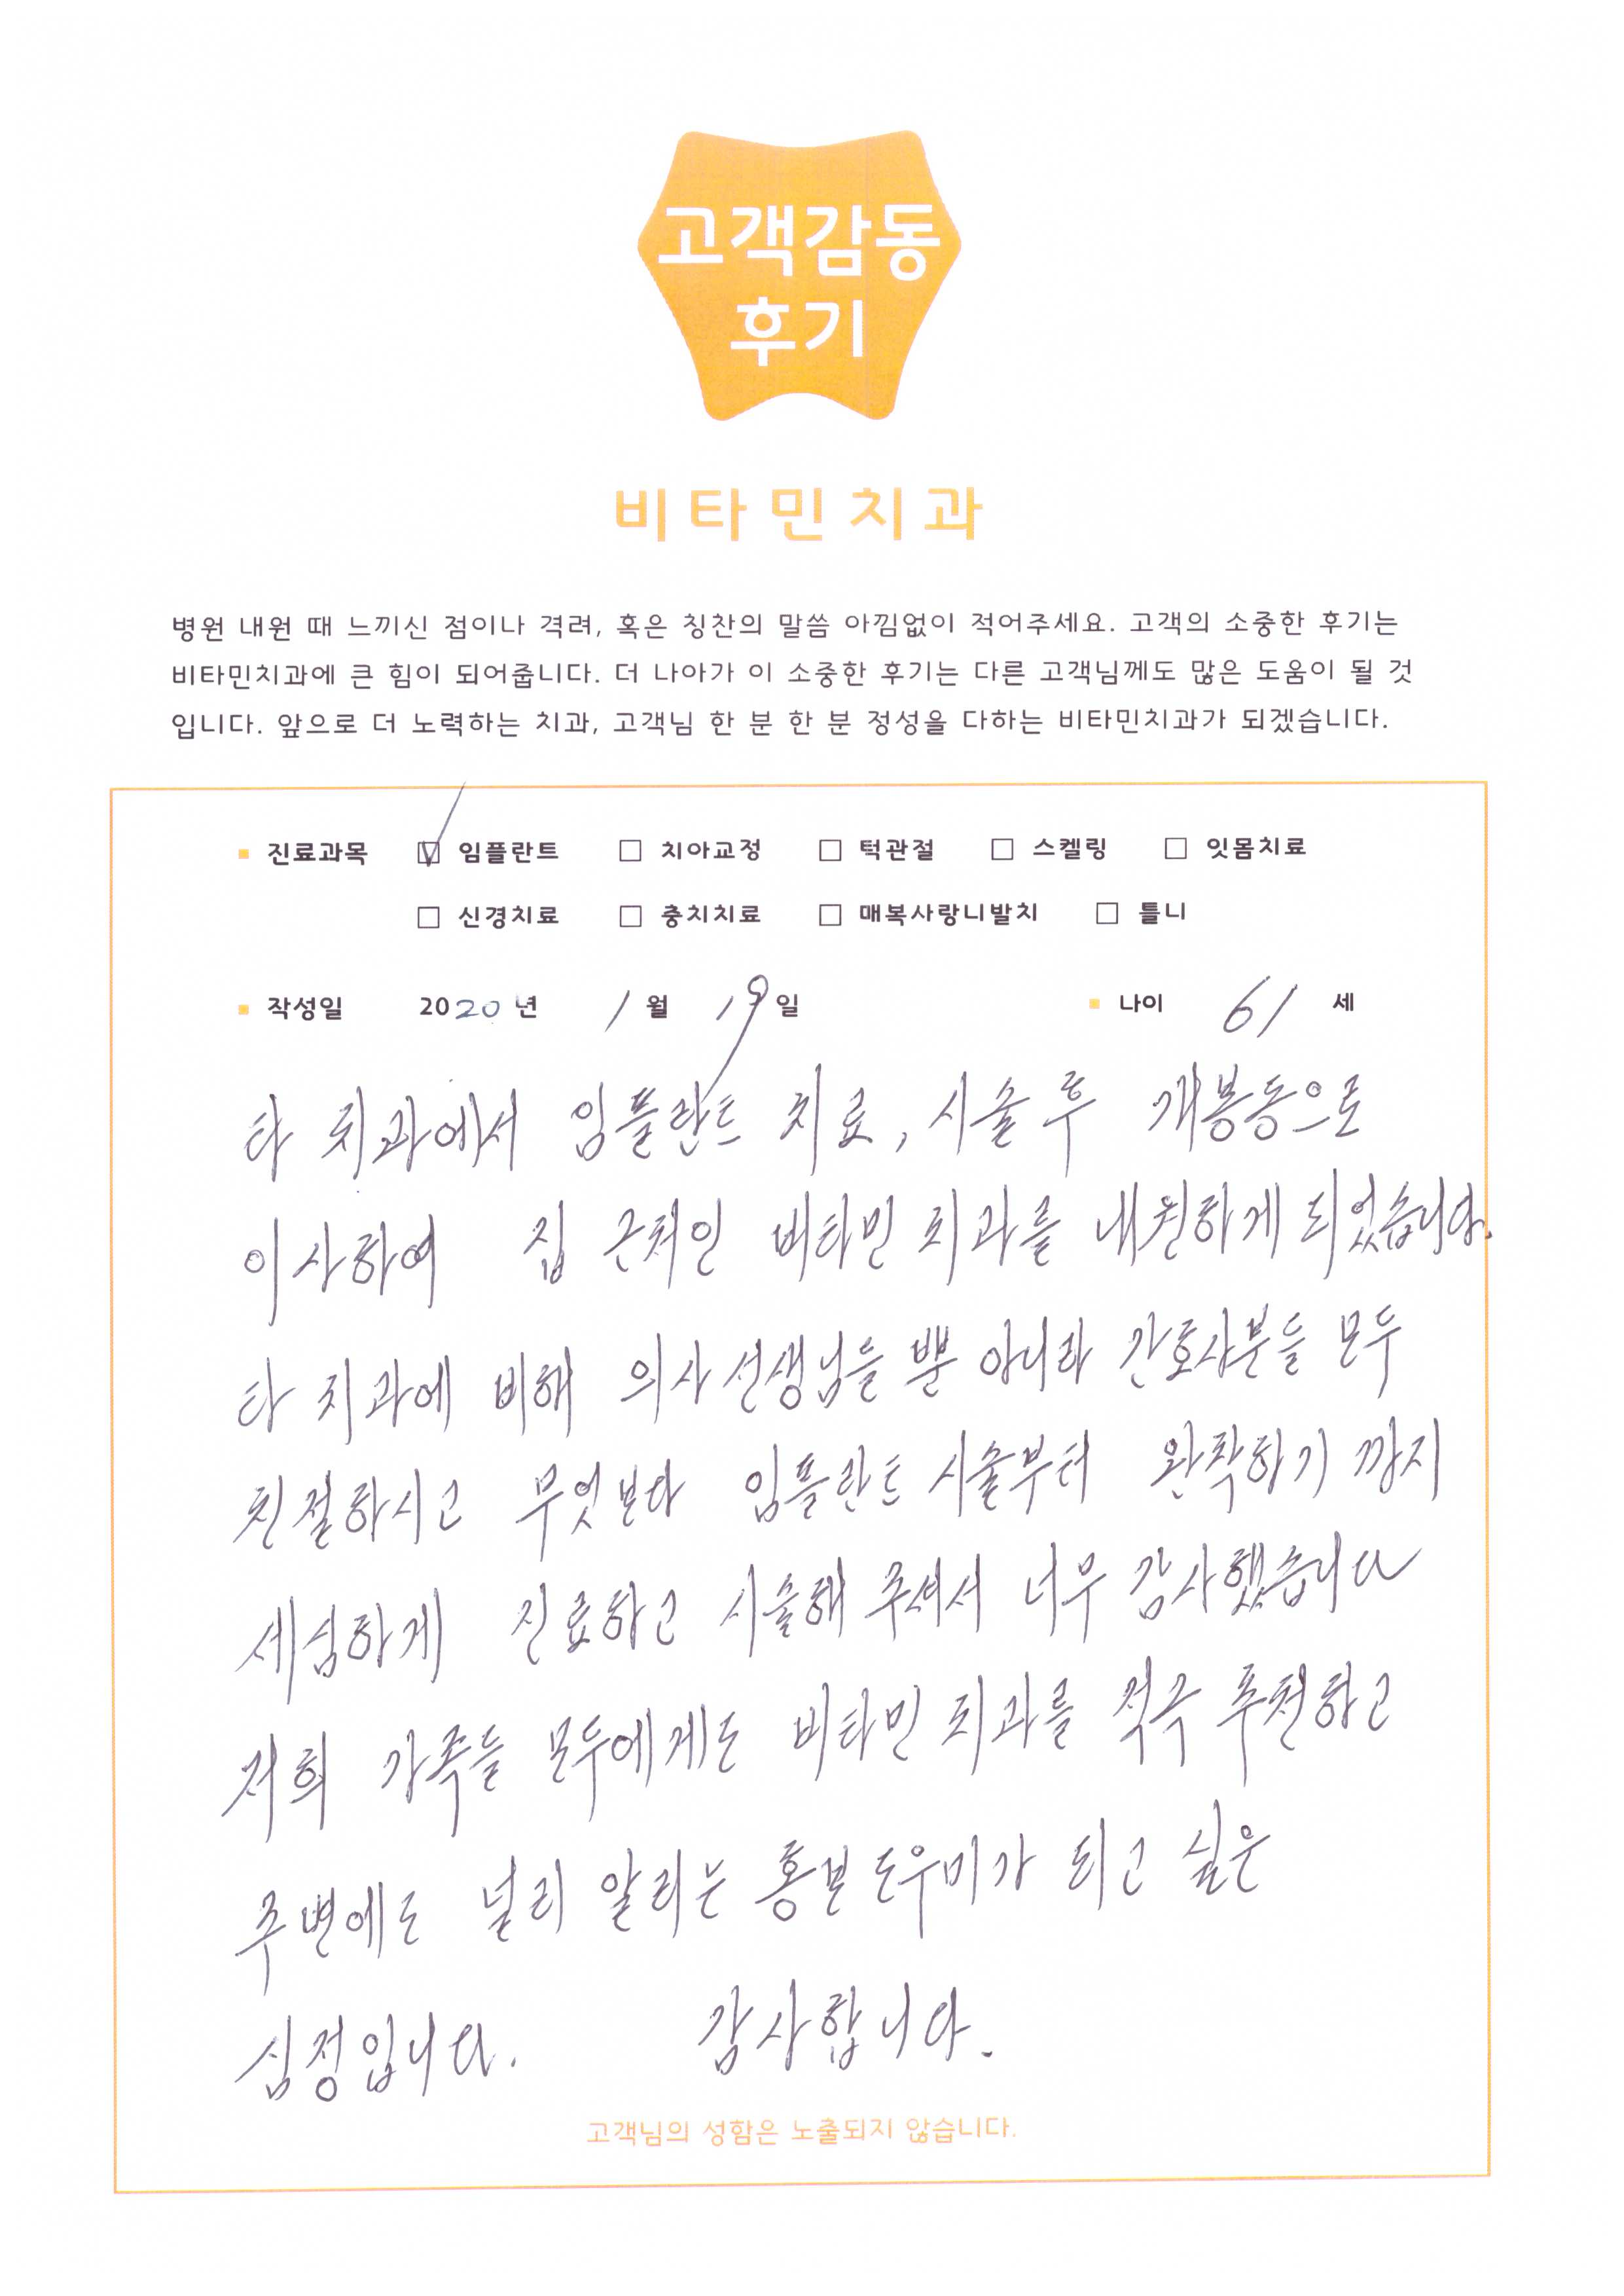 고객감동
후기
비타민치과
병원 내원 때 느끼신 점이나 격려, 혹은 칭찬의 말씀 아낌없이 적어주세요. 고객의 소중한 후기는
비타민치과에 큰 힘이 되어줍니다. 더 나아가 이 소중한 후기는 다른 고객님께도 많은 도움이 될 것
입니다. 앞으로 더 노력하는 치과, 고객님 한 분 한 분 정성을 다하는 비타민치과가 되겠습니다.
진료과목 임플란트 치아교정 턱관절 스켈링 잇몸치료
신경치료 충치치료 매복사랑니발치 틀니
작성일 2020년 1월 19일 나이 61 세
타 치과에서 임플란트 치료, 시술 후 개봉동으로
이사하여 집 근처인 비타민 치과를 내원하게 되었습니다.
타 치과에 비해 의사선생님들 뿐 아니라 간호사분들 모두
친절하시고 무엇보다 임플란트 시술부터 완착하기 까지
세심하게 진료하고 시술해 주셔서 너무 감사했습니다
저희 가족들 모두에게도 비타민 치과를 적극 추천하고
주변에도 널리 알리는 홍보도우미가 되고 싶은
심정입니다. 감사합니다.
고객님의 성함은 노출되지 않습니다.